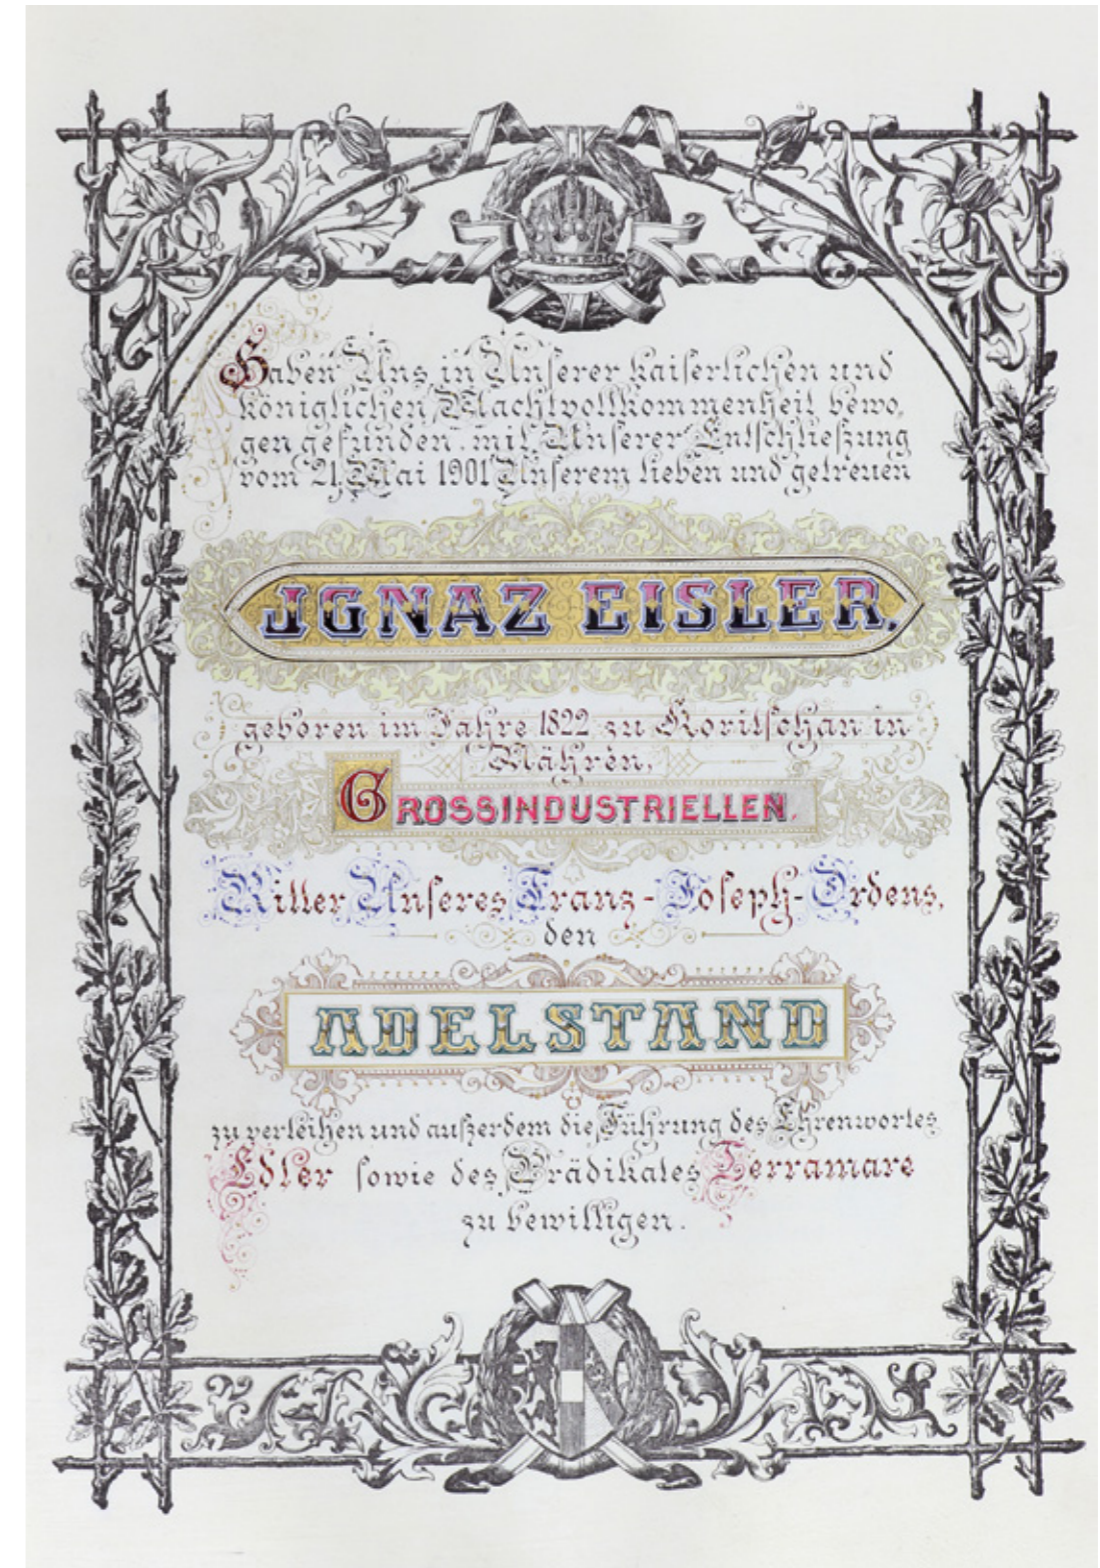 Haben Uns in Unserer kaiserlichen und
königlichen Machtvollkommenheit bewo-
gen gefunden, mit Unserer Entschließung
vom 21. Mai 1901 Unserem lieben und getreuen
JGNAZ EISLER,
geboren im Jahre 1822 zu Koritschan in
Mähren,
GROSSINDUSTRIELLEN,
Ritter Unseres Franz-Joseph-Ordens,
den
ADELSTAND
zu verleihen und außerdem die Führung des Ehrenwortes
Edler sowie des Prädikates Terramare
zu bewilligen.